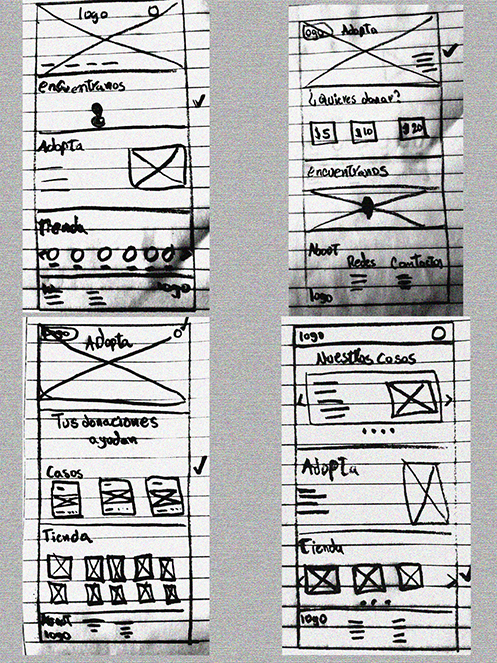 logo
encuentranos
Adopta
Tienda
logo
logo
Adopta
¿Quieres donar?
$5
$10
$20
Encuentranos
About
Redes
Contactos
logo
logo
Adopta
Tus donaciones
ayudan
Casos
Tienda
About
logo
logo
Nuestros casos
Adopta
Tienda
logo